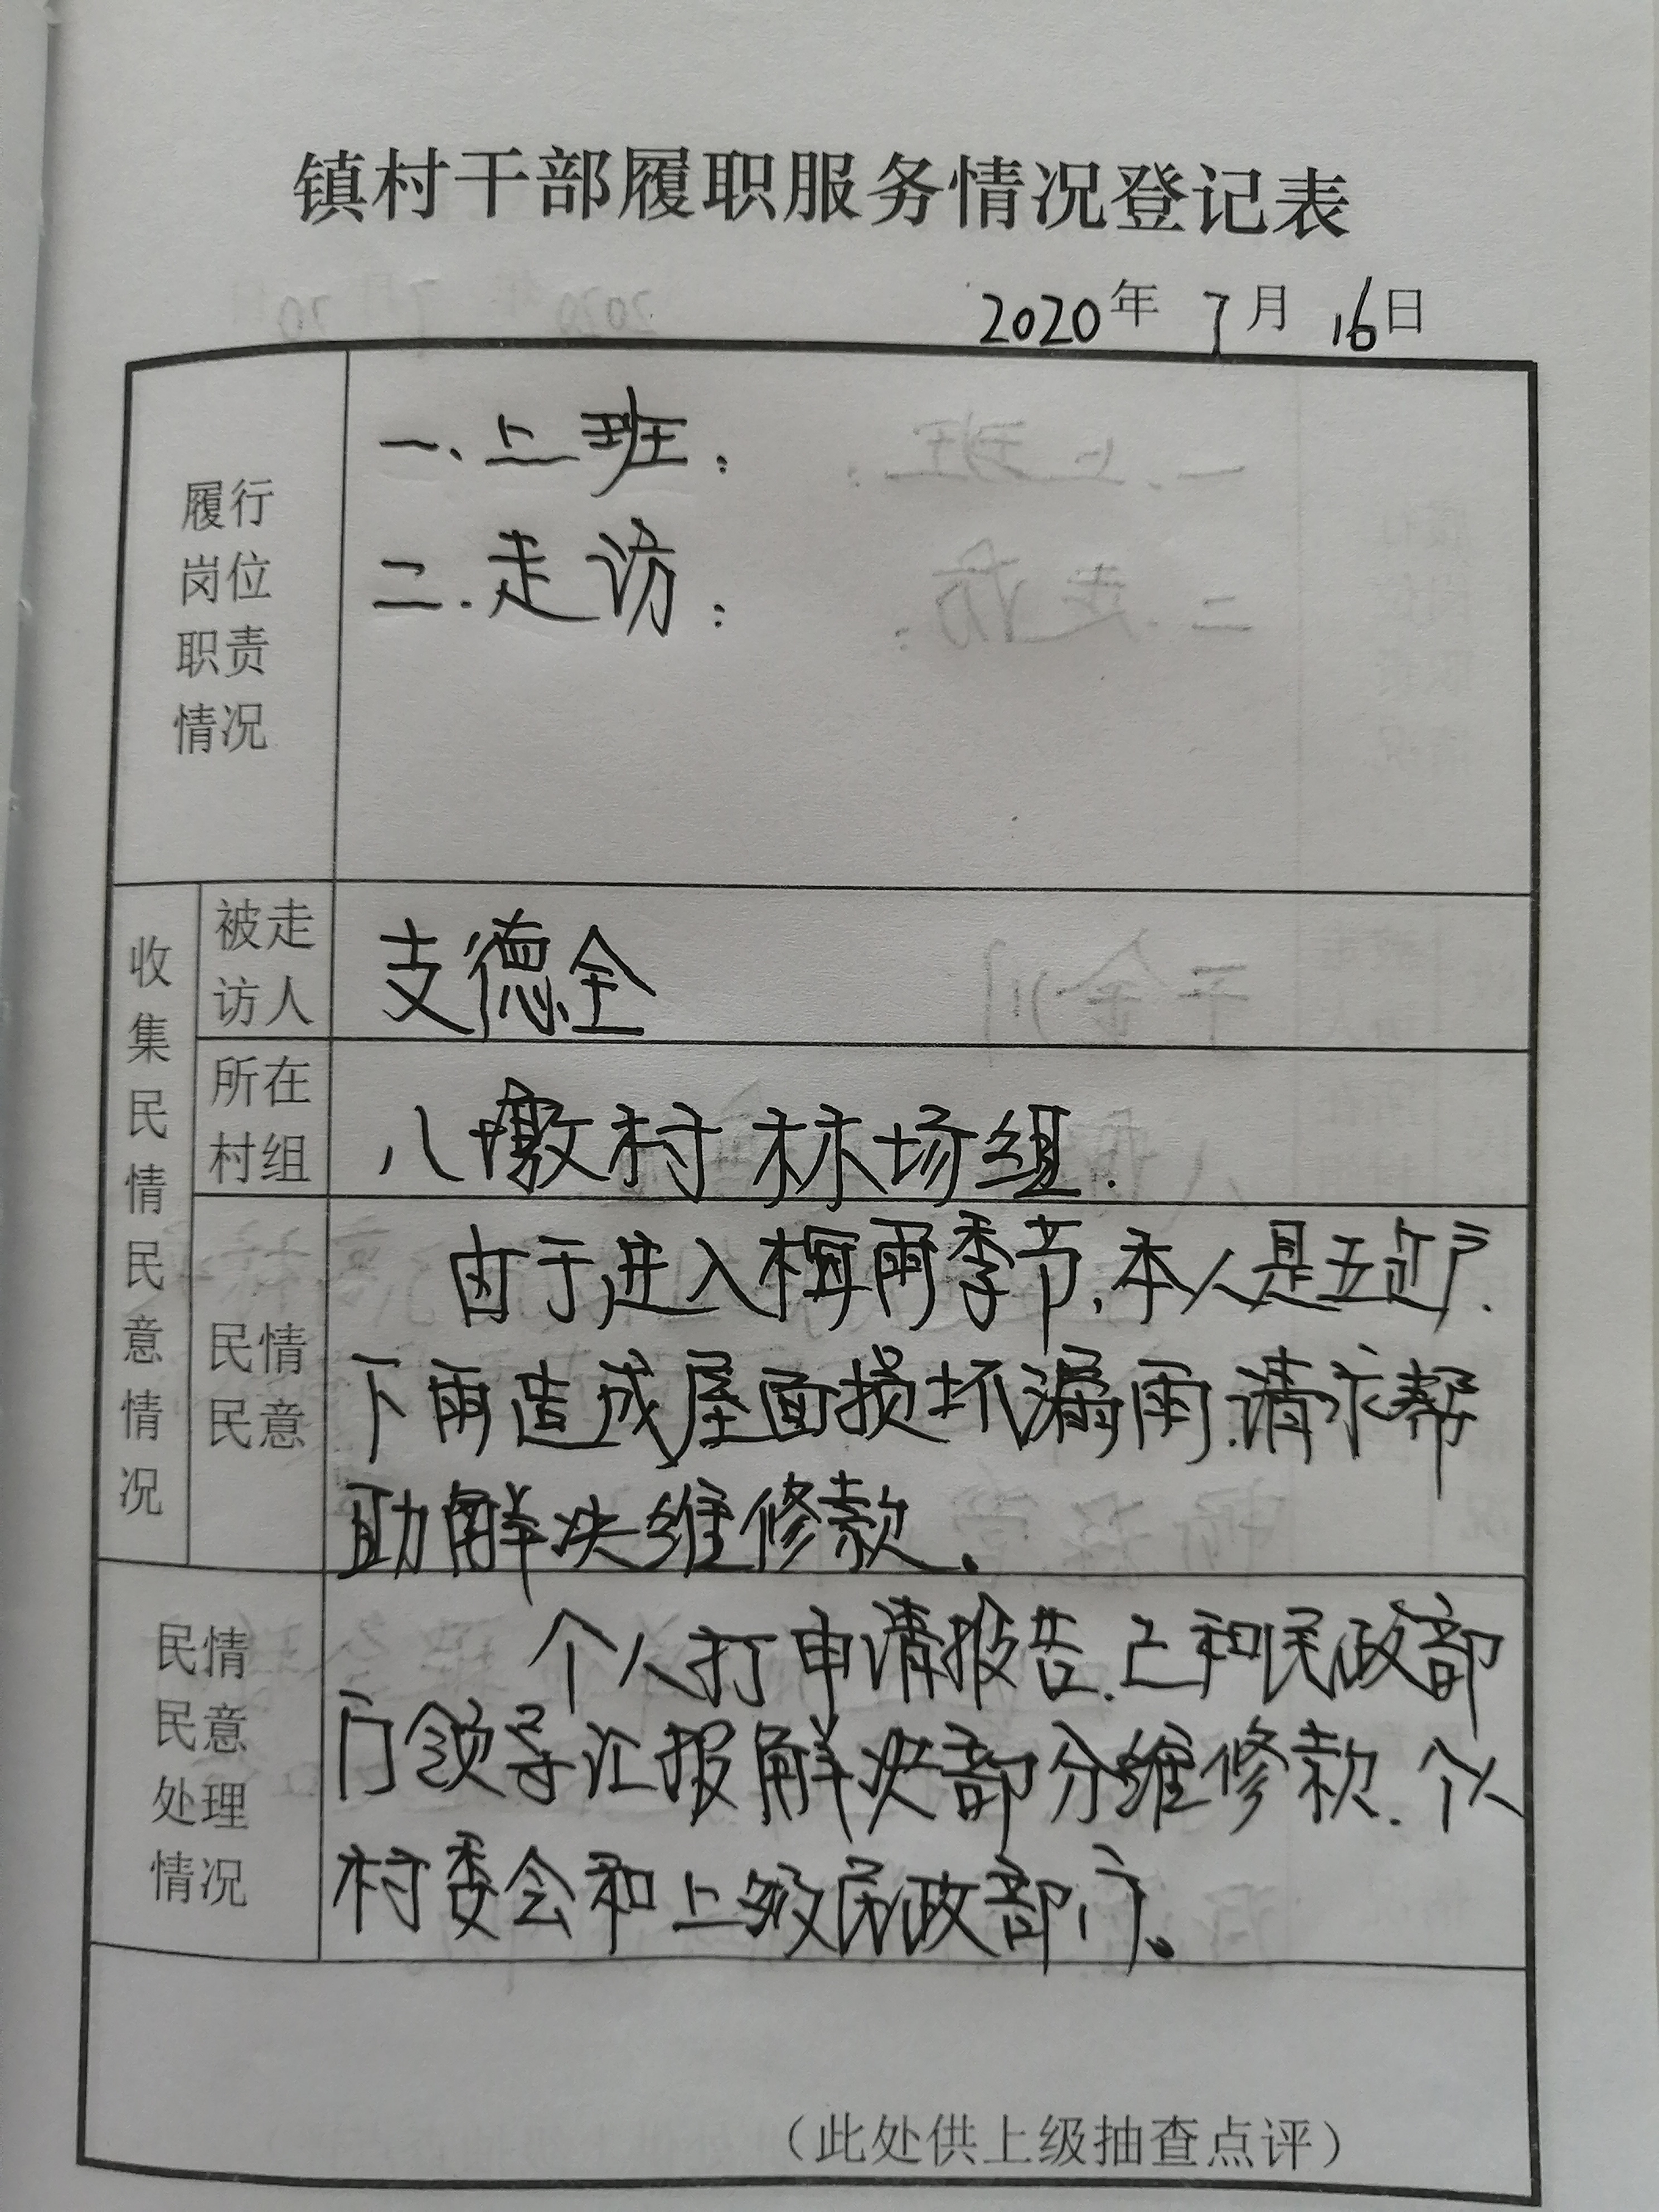 镇村干部履职服务情况登记表
2020年 7月 16日
履行
岗位
职责
情况
一、上班：
二.走访：
收集民情民意情况
被走
访人
支德全
所在
村组
八墩村林场组.
民情
民意
由于进入梅雨季节,本人是五边户.
下雨造成屋面损坏漏雨.请求帮
助解决维修款.
民情
民意
处理
情况
个人打申请报告.上和民政部
门领导汇报解决部分维修款.个人
村委会和上级民政部门。
（此处供上级抽查点评）